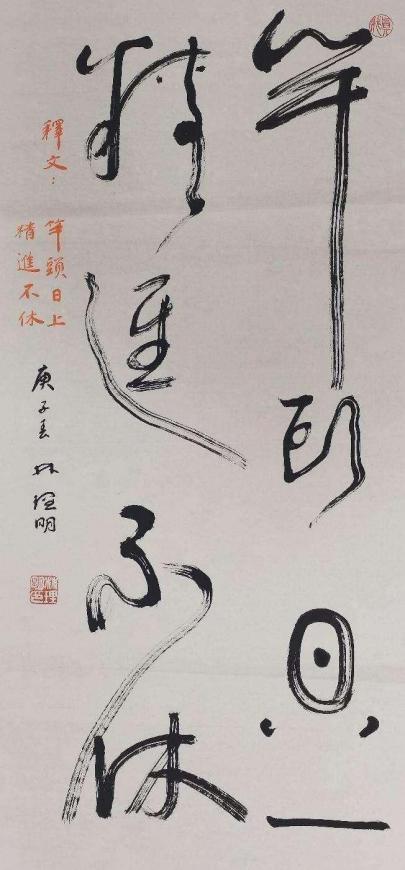 竿頭日上
精進不休
釋文：竿頭日上
精進不休
庚子春 林理明